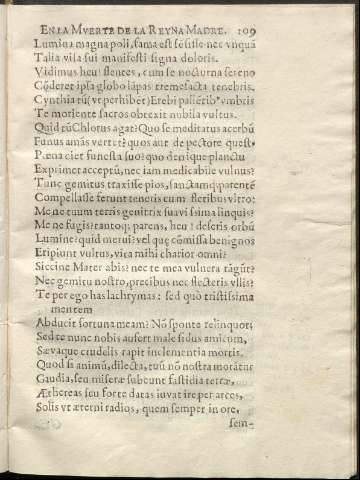 EN LA MVERTE DE LA REYNA MADRE. 109
Lumina magna poli, fama est fe sisse nec vnquā
Talia visa sui manifesti signa doloris.
Vidimus heu! flentes, cum se nocturna sereno
Cōderet ipsa globo lāpas tremefacta tenebris.
Cynthia tū (vt perhibēt) Erebi pallētib' vmbris
Te moriente sacros obtexit nubila vultus.
Quid tū Chlorus agat? Quo se meditatus acerbū
Funus amās vertet? quos aut de pectore quest'
Pœna ciet funesta suo? quo denique planctu
Exprimet acceptū, nec iam medicabile vulnus?
Tunc gemitus traxisse pios, sanctamq; parentē
Compellasse ferunt teneris cum fletibus vltro:
Me ne tuum terris genitrix suavissima linquis?
Me ne fugis? tantoq; parens, heu! deseris orbū
Lumine? quid merui? vel quę cōmissa benignos
Eripiunt vultus, vita mihi charior omni?
Siccine Mater abis? nec te mea vulnera tāgūt?
Nec gemitu nostro, precibus nec flecteris vllis?
Te per ego has lachrymas: sed quò tristissima
mentem
Abducit fortuna meam? Nō sponte relinquor;
Sed te nunc nobis aufert male sidus amicum,
Sævaque crudelis rapit inclementia mortis.
Quod si animū, dilecta, tuū nō nostra morātur
Gaudia, seu miseræ subeunt fastidia terræ,
Æthereas seu forte datas iuvat ire per arces,
Solis vt æterni radios, quem semper in ore,
sem-